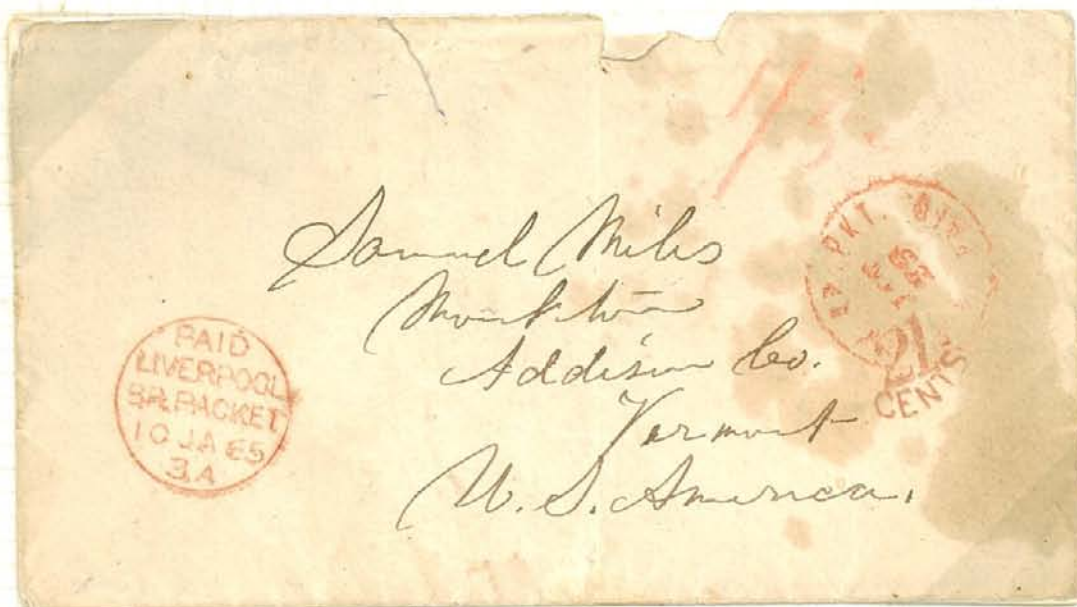 Samuel Miles
Monkton
Addison Co.
Vermont
U. S. America.
PAID
LIVERPOOL
BR. PACKET
10 JA 65
3A
PKT.
21
CENTS